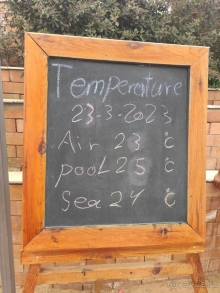 Temperature
23-3-2023
Air 23 °C
pool 25 °C
Sea 24 °C